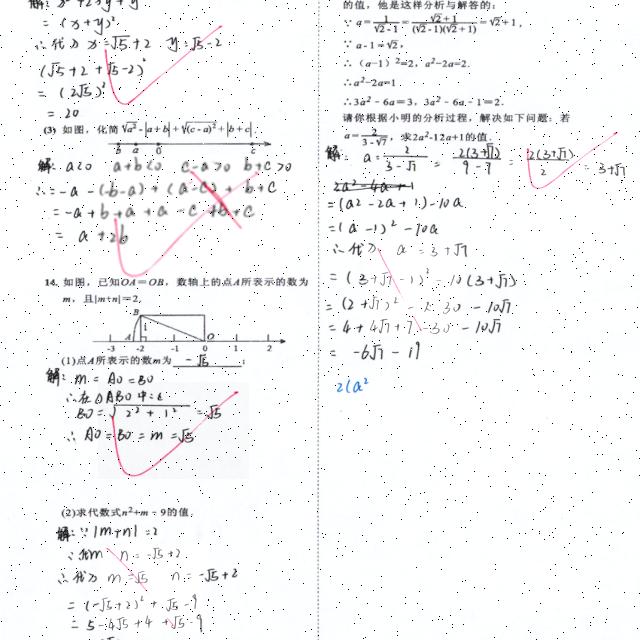 = (x+y)²
∴代入 x=√5+2 y=√5-2
(√5+2+√5-2)²
= (2√5)²
= 20
(3) 如图，化简√a²-|a+b|+√(c-a)²+|b+c|
b a 0 c
解: a<0 a+b<0 c-a>0 b+c>0
∴=-a-(-b-a)+(a-c)+b+c
=-a+b+a+a-c+b+c
= a+2b
14. 如图，已知OA=OB，数轴上的点A所表示的数为
m，且|m+n|=2,
B
1
A O
-3 -2 -1 0 1 2
(1)点A所表示的数m为 -√5 ;
解: m = AO = BO
BO = √2²+1² = √5
∴ AO = BO = m = √5
(2)求代数式n²+m-9的值.
解: ∵ |m+n| = 2
n = -√5+2
∴代入 m=√5 n=-√5+2
= (-√5+2)²+√5-9
= 5-4√5+4+√5-9
的值，他是这样分析与解答的:
∵a=1/(√2-1)=(√2+1)/((√2-1)(√2+1))=√2+1,
∵a-1=√2,
∴(a-1)²=2, a²-2a=2.
∴a²-2a=1.
∴3a²-6a=3, 3a²-6a-1=2.
请你根据小明的分析过程，解决如下问题：若
a=2/(3-√7), 求2a²-12a+1的值.
解: a=2/(3-√7) = 2(3+√7)/(9-7) = 2(3+√7)/2 = 3+√7
2a²-4a+1
=(a²-2a+1)-10a
=(a-1)²-10a
∴代入 a=3+√7
=(3+√7-1)²-10(3+√7)
=(2+√7)²-30-10√7
=4+4√7+7-30-10√7
= -6√7-19
2(a²